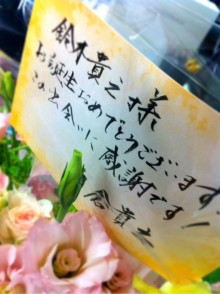 鈴木貴之様
お誕生日おめでとうございます
この出会いに感謝です!
念貴之